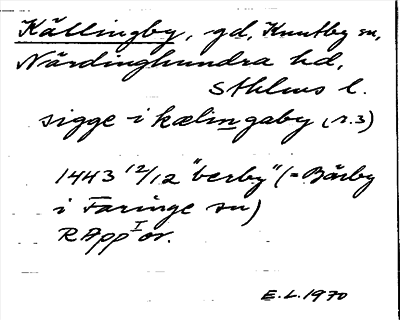 Källingby, gd, Knutby sn,
Närdinghundra hd,
Sthlms l.
sigge i kælingaby (r.3)
1443 12/12 "berby" (= Bärby
i Faringe sn)
RApp I or.
E.L. 1970